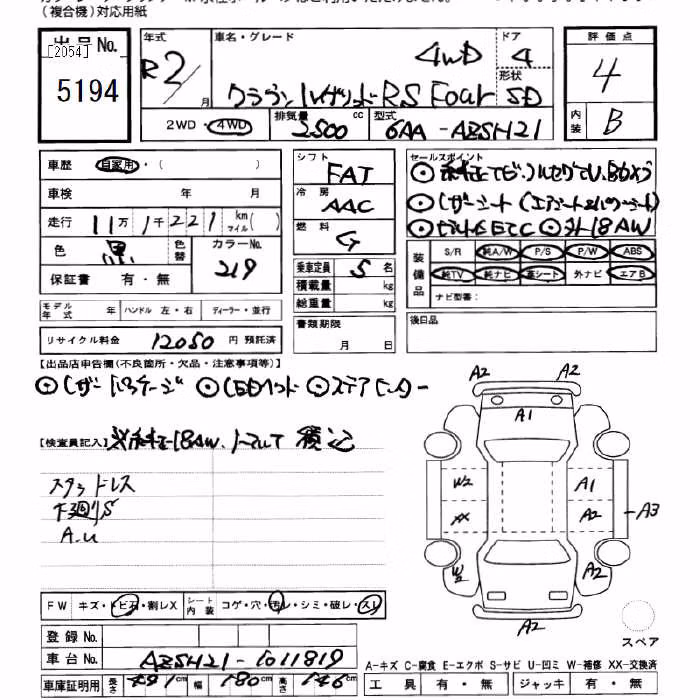 (複合機)対応用紙
出品No.
[2054]
5194
年式
R2/
月
車名・グレード
4WD
クラウン ハイブリッド RS Four
ドア
4
形状
SD
評価点
4
内装
B
2WD・4WD
排気量
2500
cc
型式
6AA-AZSH21
車歴
自家用・( )
車検
年 月
走行
11万1千221
km
マイル( )
色
黒
色替
カラーNo.
219
保証書 有・無
モデル年式
年
ハンドル 左・右
ディーラー・並行
リサイクル料金
12050
円 預託済
シフト
FAT
冷房
AAC
燃料
G
乗車定員
5
名
積載量
kg
総重量
kg
書類期限
月 日
セールスポイント
装備品
S/R
純A/W
P/S
P/W
ABS
純TV
純ナビ
革シート
外ナビ
エアB
ナビ型番:
後日品
【出品店申告欄(不良箇所・欠品・注意事項等)】
◎レザーパッケージ
【検査員記入】
スタッドレス
下廻りS
A.U
A2
A2
A1
W2
A1
XX
A2
A3
W2
A2
A2
スペア
FW
キズ・トビ石・割レX
シート内装
コゲ・穴・汚レ・シミ・破レ・スレ
登録No.
車台No.
AZSH21-1011819
車庫証明用
長さ
491
幅
180
高さ
146
cm
A-キズ C-腐食 E-エクボ S-サビ U-凹ミ W-補修 XX-交換済
工具
有・無
ジャッキ
有・無